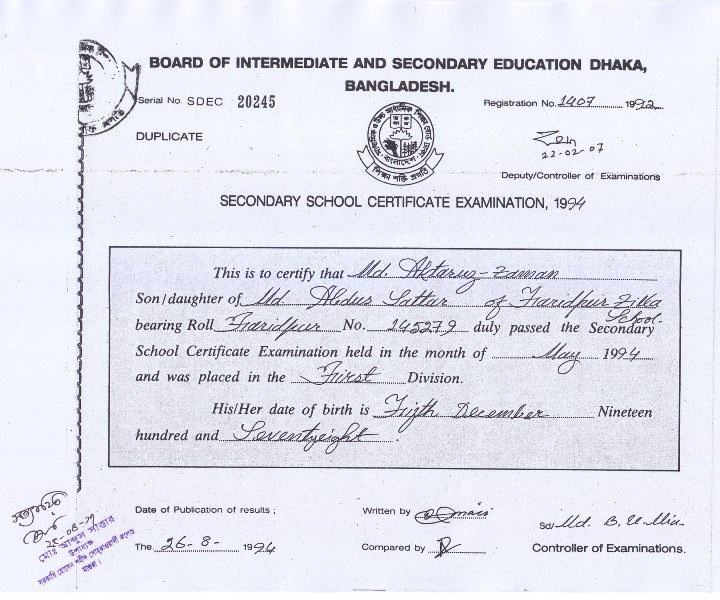 BOARD OF INTERMEDIATE AND SECONDARY EDUCATION DHAKA,
BANGLADESH.
Serial No. SDEC 20245
Registration No. 1407 1992
DUPLICATE
22-02-07
Deputy/Controller of Examinations
SECONDARY SCHOOL CERTIFICATE EXAMINATION, 1994
This is to certify that Md. Aktaruz-zaman
Son/daughter of Md. Abdus Sattar of Faridpur Zilla
School
bearing Roll Faridpur No. 145279 duly passed the Secondary
School Certificate Examination held in the month of May 1994
and was placed in the First Division.
His/Her date of birth is Fifth December Nineteen
hundred and Seventyeight.
Date of Publication of results ;
Written by
Sd/ Md. B. U. Mia
The 26-8- 1994
Compared by
Controller of Examinations.
সত্যায়িত
মোঃ আব্দুস সাত্তার
উপাধ্যক্ষ